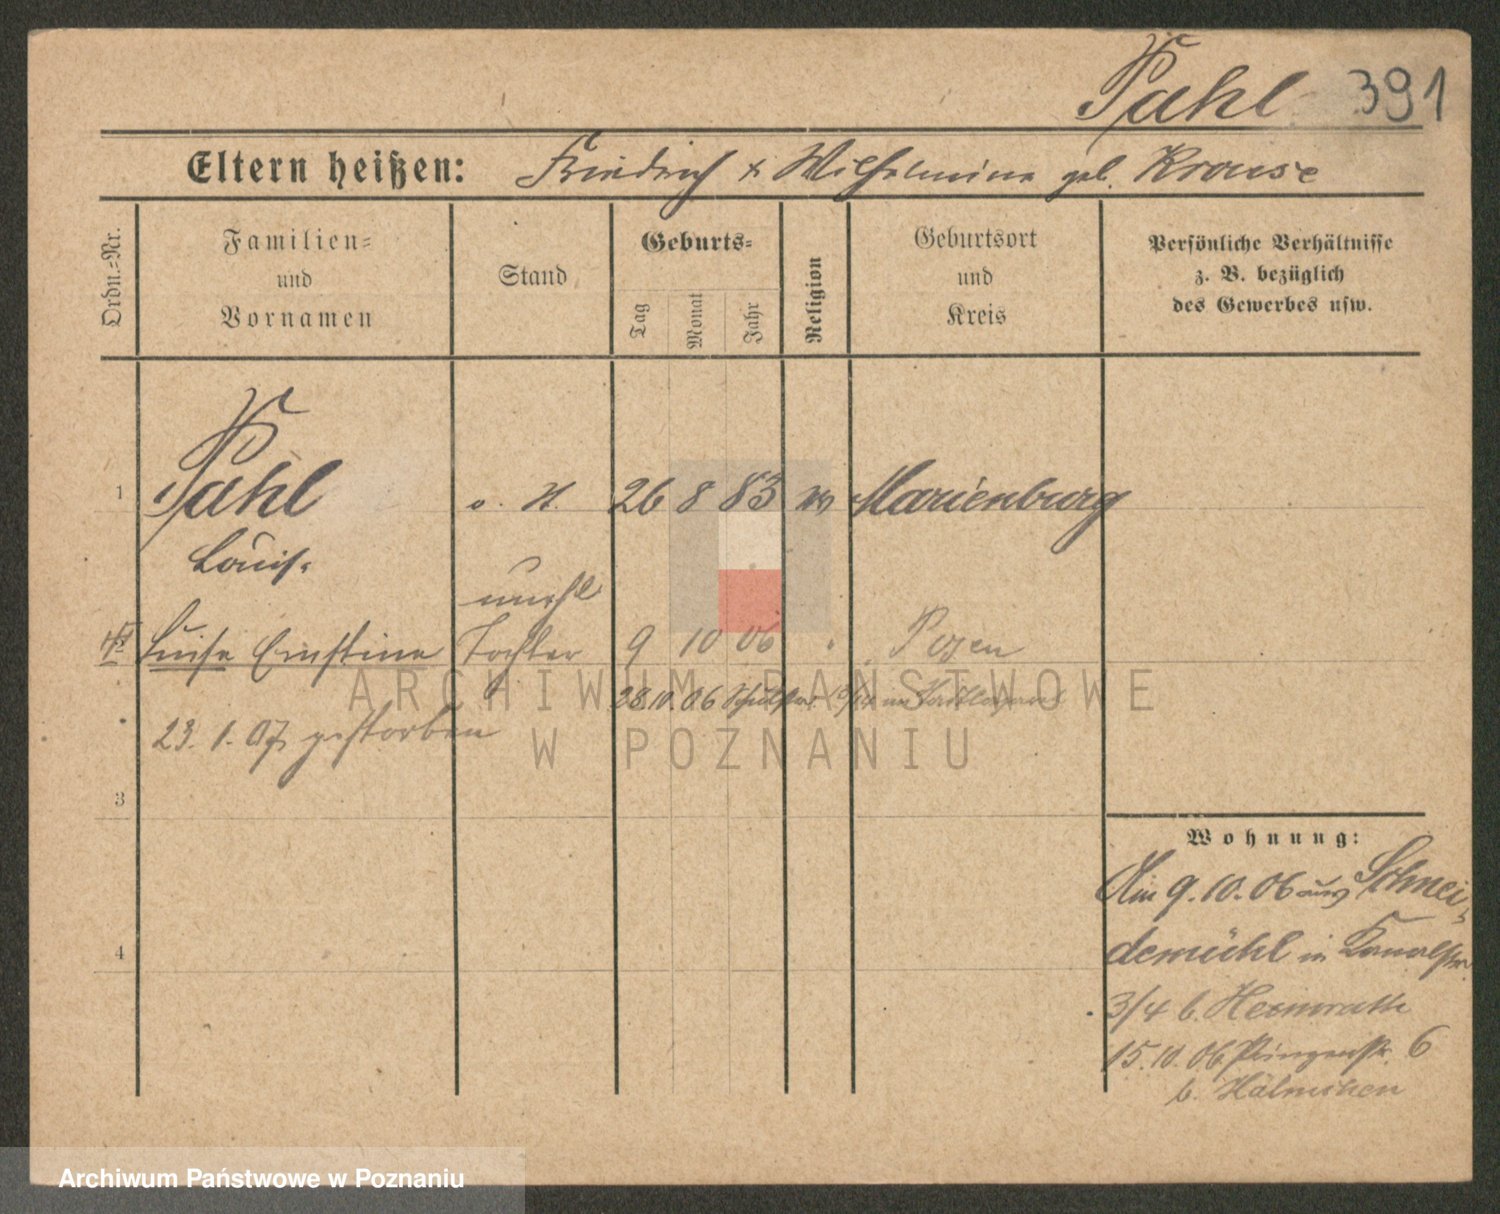 Pahl 391
Eltern heißen: Friedrich & Wilhelmine geb. Krause
Ordn.-Nr.
Familien-
und
Vornamen
Stand
Geburts-
Tag
Monat
Jahr
Religion
Geburtsort
und
Kreis
Persönliche Verhältnisse
z. B. bezüglich
des Gewerbes usw.
1 Pahl o. St. 26 8 83 Marienburg
Louise
unehl
Luise Ernstine Tochter 9 10 06 Posen
28.10.06
23.1.07 gestorben
3
4
Wohnung:
Am 9.10.06 aus Schnei-
demühl in Kanalstr.
3/4 b.
15.10.06 6
b.
ARCHIWUM PAŃSTWOWE
W POZNANIU
Archiwum Państwowe w Poznaniu